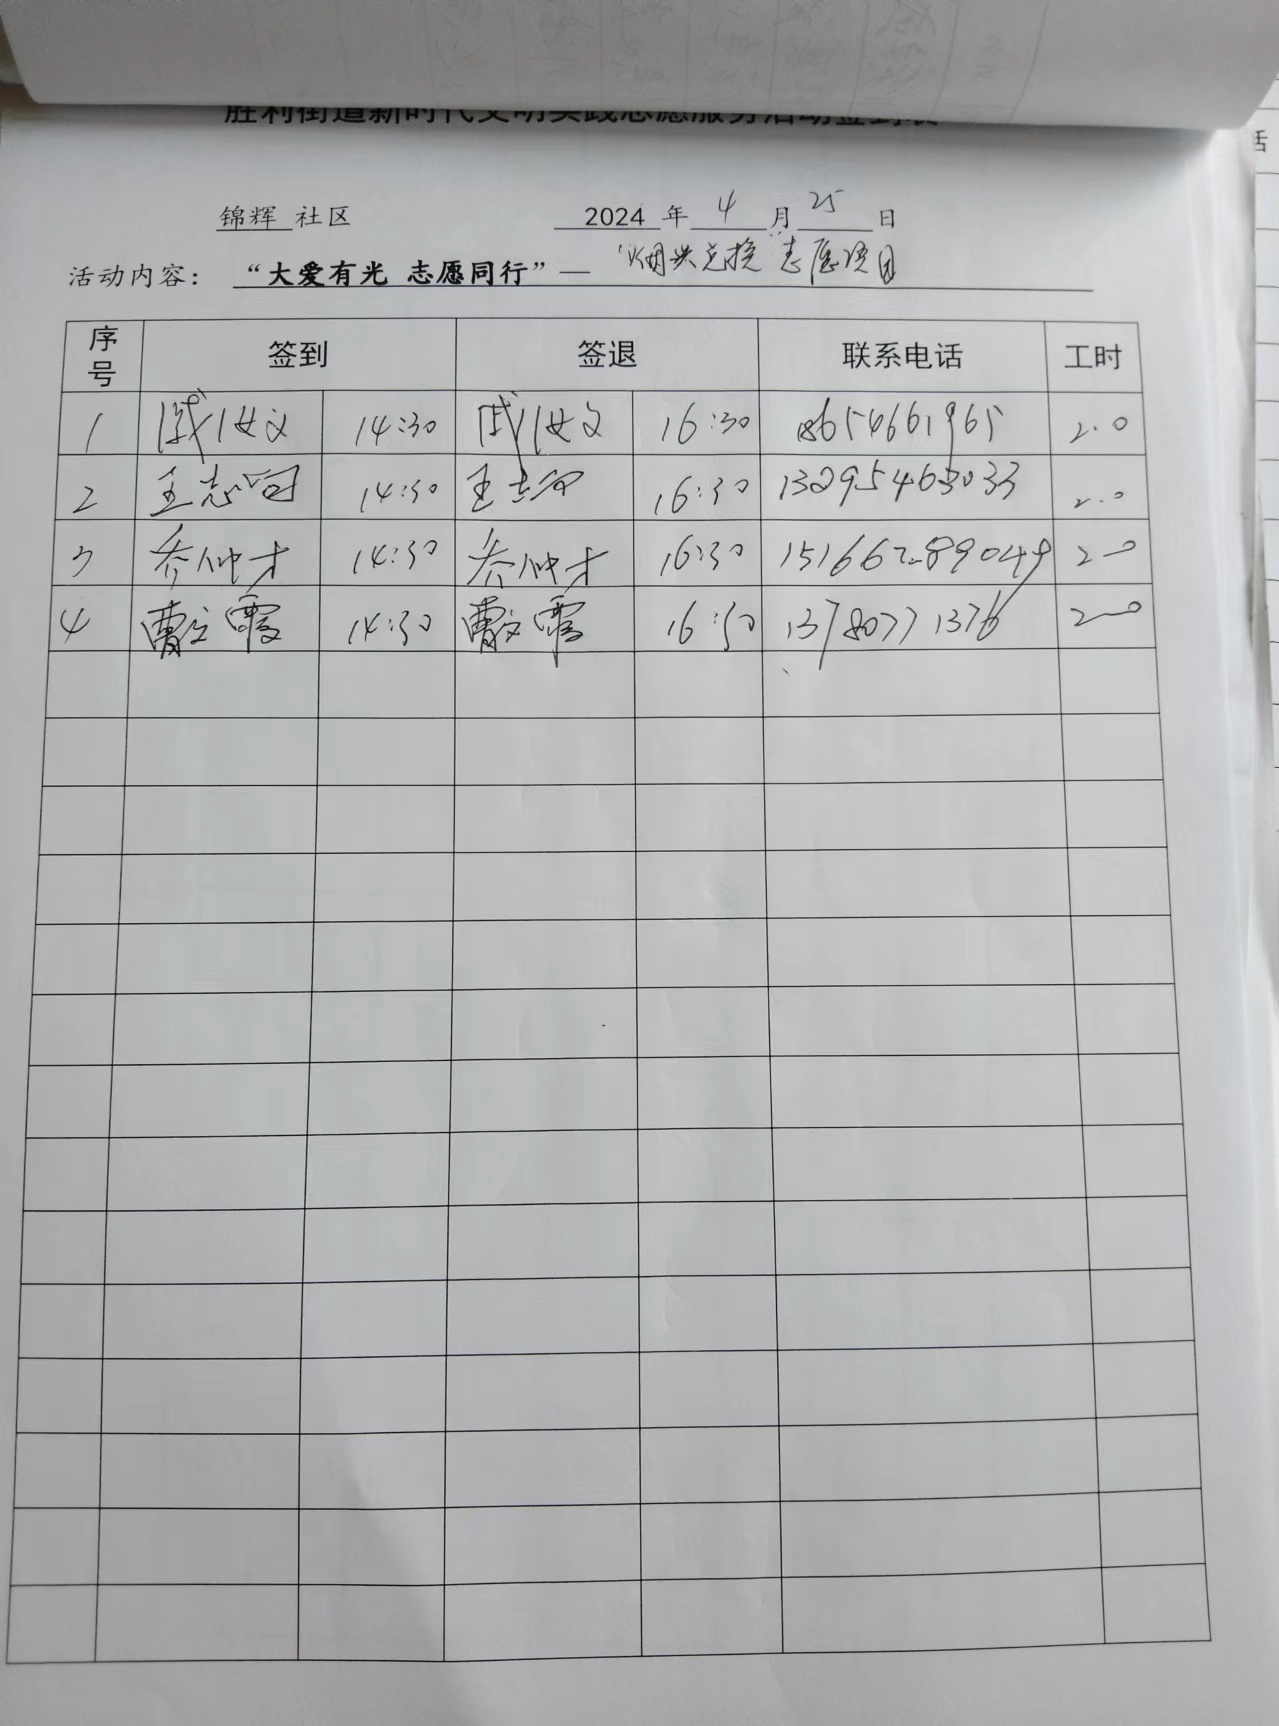 胜利街道新时代文明实践志愿服务活动签到表
锦辉 社区 2024 年 4 月 25 日
活动内容： “大爱有光 志愿同行”— 烟头兑换 志愿项目
序号 签到 签退 联系电话 工时
1 14:30 16:30 18654661965 2.0
2 王志 14:30 王志 16:30 13295463033 2.0
3 乔仲才 14:30 乔仲才 16:30 15166289049 2.0
4 曹文霞 14:30 曹文霞 16:30 13780771376 2.0
话